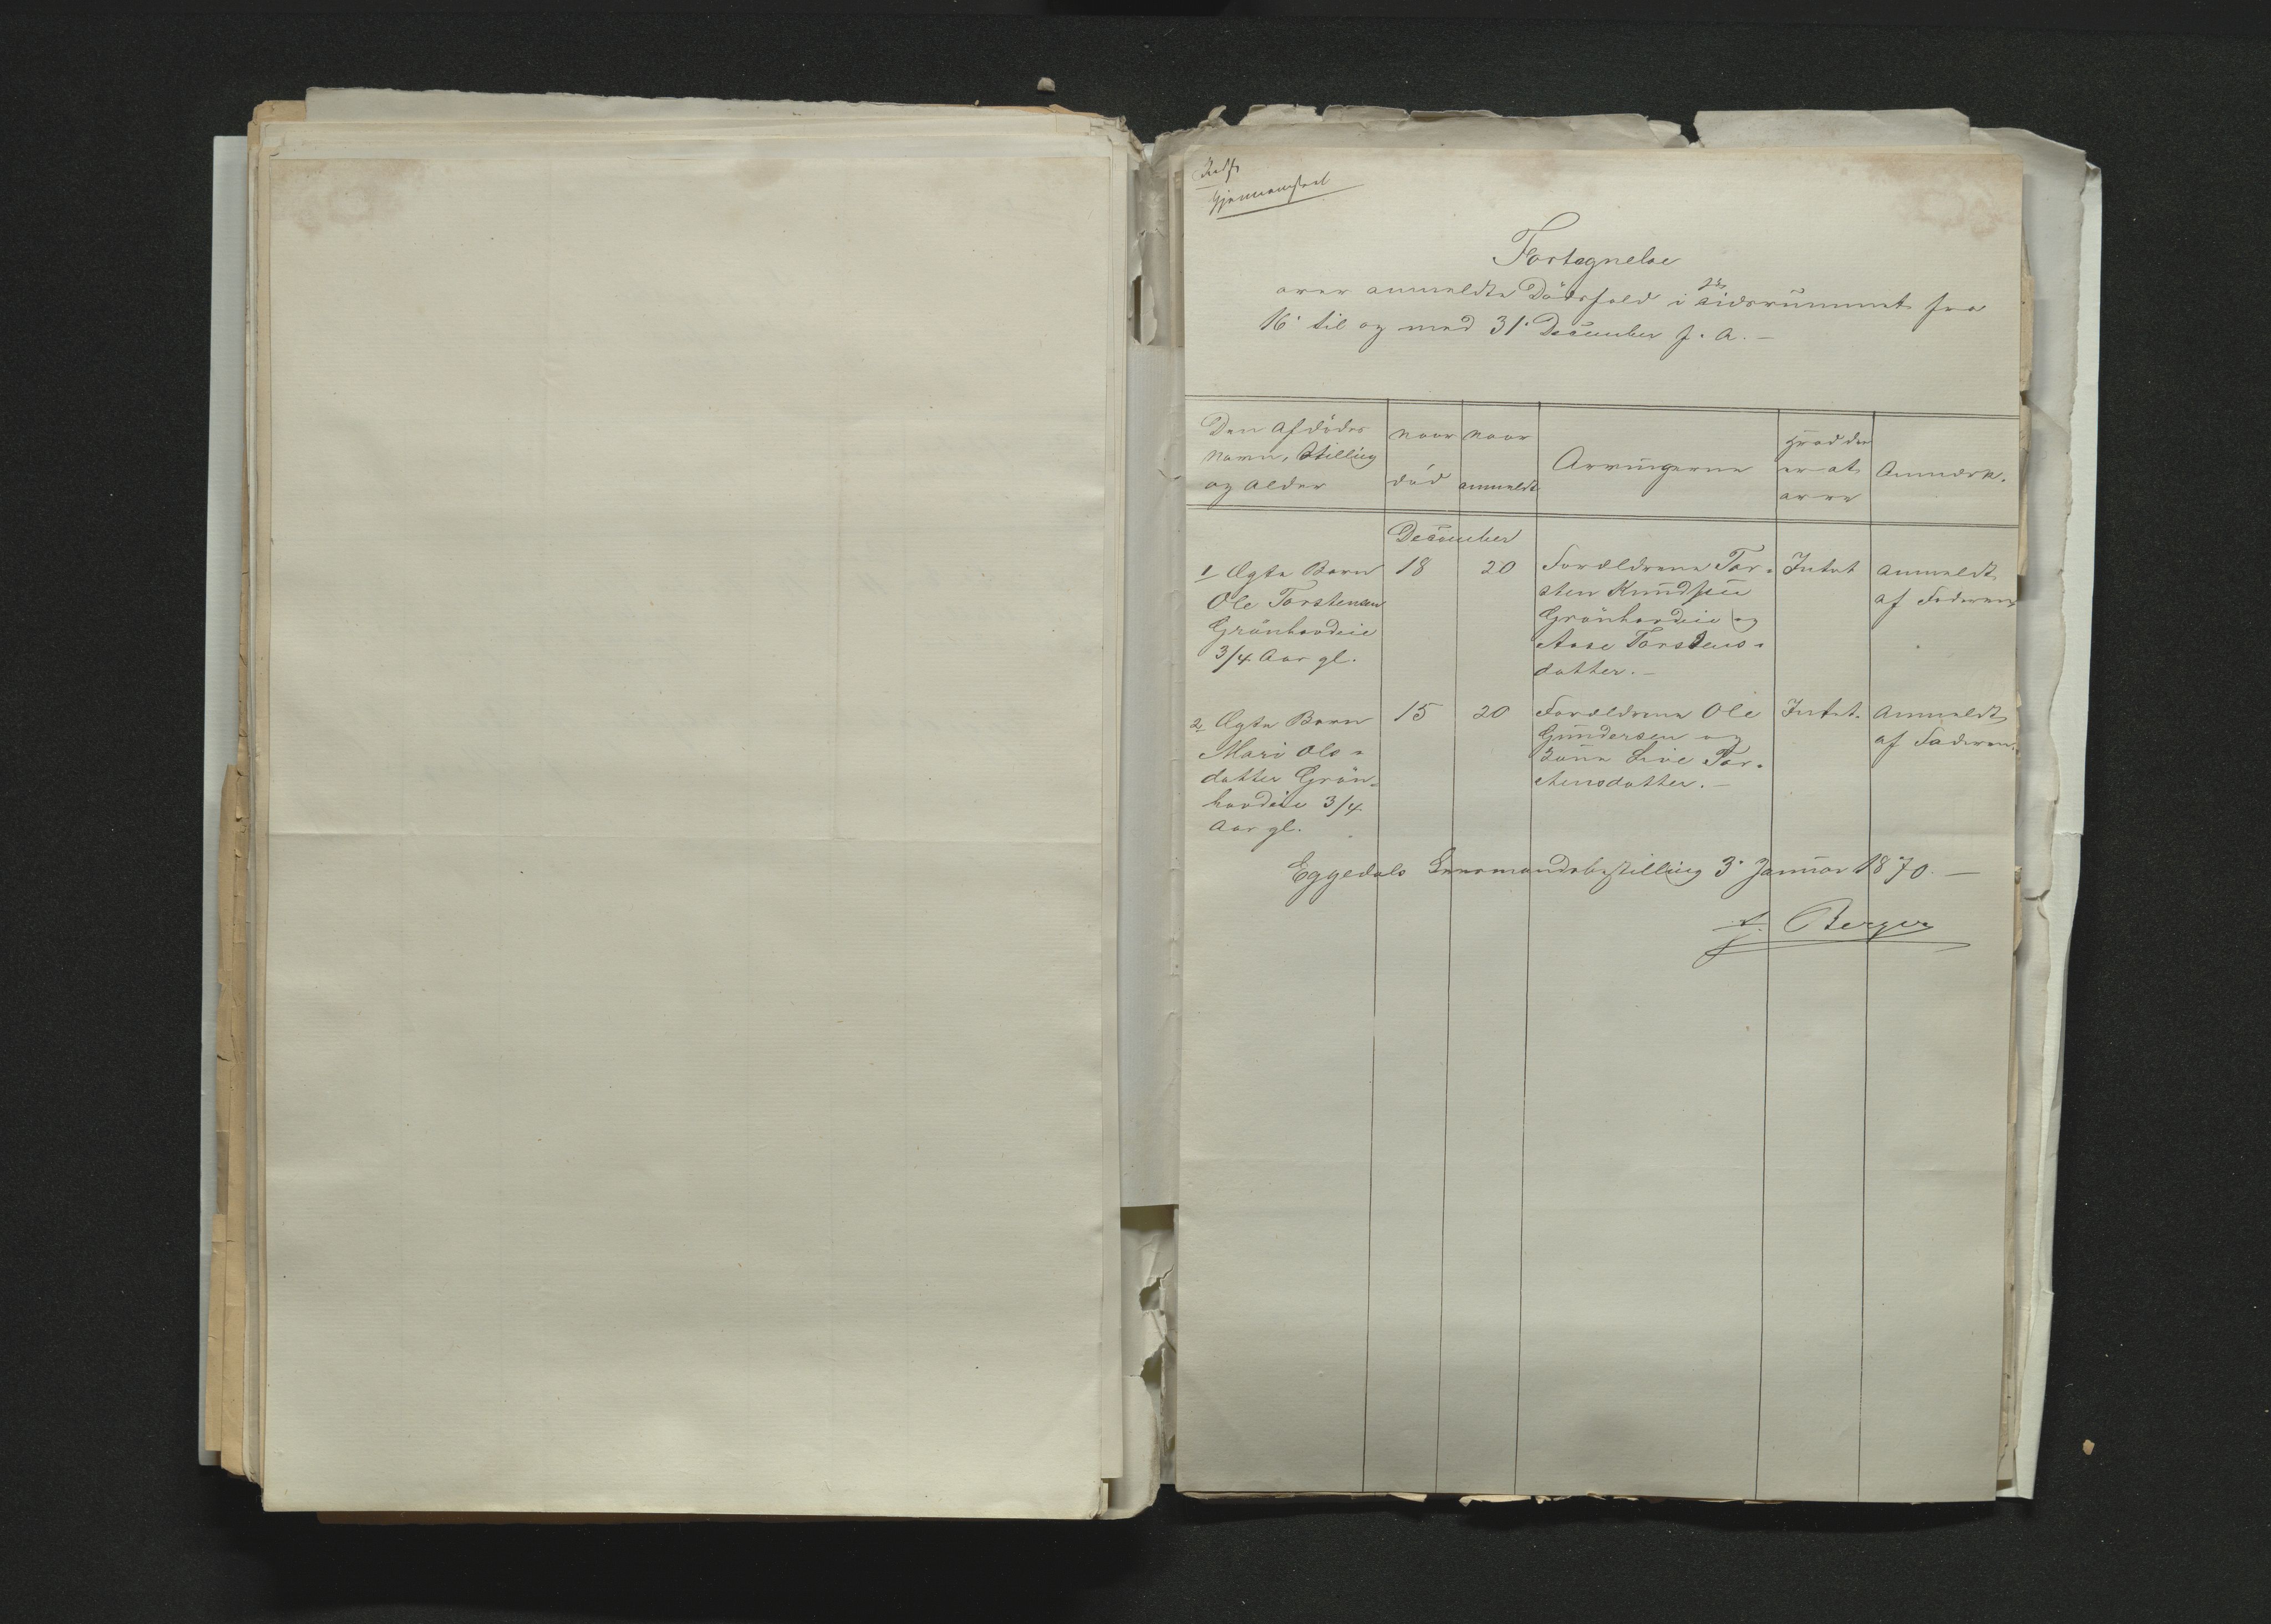 Fortegnelse
over anmeldte Dødsfald i Tidsrummet fra
16. til og med 31. December f. A. —
Den Afdødes
Navn, Stilling
og Alder
Naar
død
Naar
anmeldt
Arvingerne
Hvad der
er at
arve
Anmærk.
December
1 Ægte Barn
Ole Torstensen
Grönhovdeie
3/4 Aar gl.
18
20
Forældrene Tor-
sten Knudsen
Grönhovdeie og
Aase Torstens-
datter. —
Intet
Anmeldt
af Faderen
2 Ægte Barn
Mari Ols-
datter Grön-
hovdeie 3/4
Aar gl.
15
20
Forældrene Ole
Gundersen og
Kone Live Tor-
stensdatter. —
Intet.
Anmeldt
af Faderen.
Eggedals Lensmandsbestilling 3. Januar 1870. —
Berger